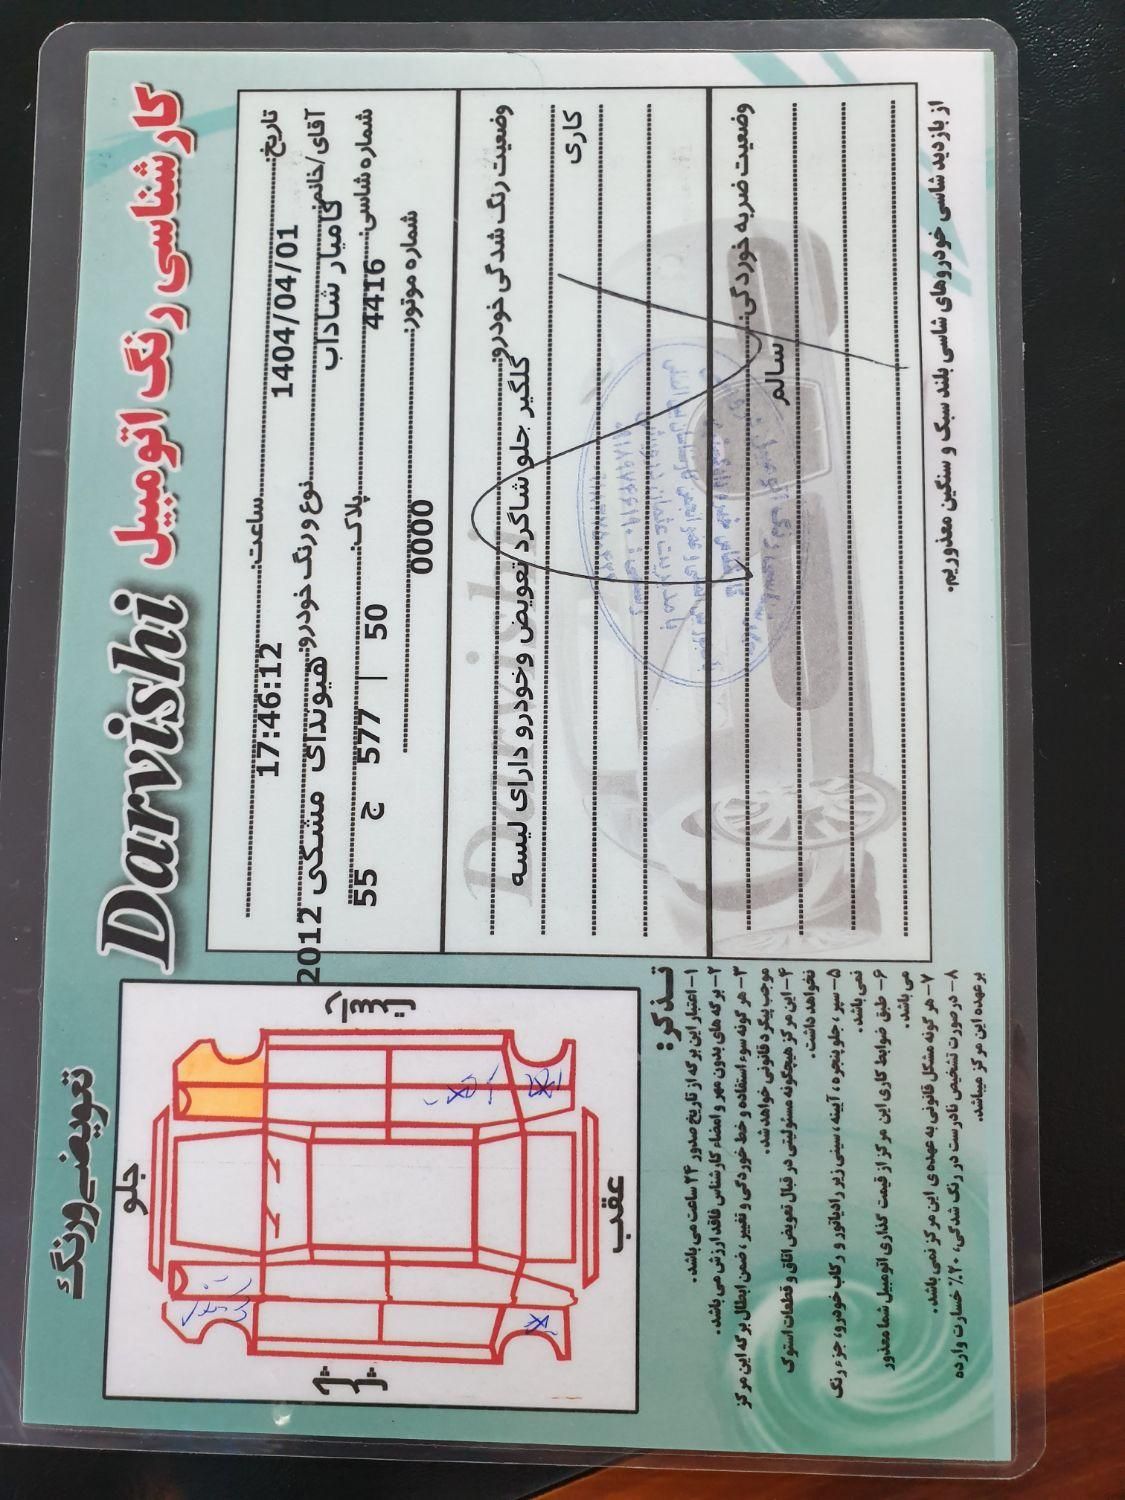 کارشناسی رنگ اتومبیل Darvishi
تاریخ: 1404/04/01 ساعت: 17:46:12
آقای/خانم: کامیار شاداب نوع و رنگ خودرو: هیوندای مشکی 2012
شماره شاسی: 4416 پلاک: 50 | 577 ج 55
شماره موتور: 0000
وضعیت رنگ شدگی خودرو:
گلگیر جلو شاگرد تعویض وخودرو دارای لیسه
کاری
Darvishi
وضعیت ضربه خوردگی:
سالم
از بازدید شاسی خودروهای شاسی بلند سبک و سنگین معذوریم.
تعویضی ورنگ
جلو
عقب
تـذکر:
۱- اعتبار این برگه از تاریخ صدور ۲۴ ساعت می باشد.
۲- برگه های بدون مهر و امضاء کارشناس فاقد ارزش می باشد.
۳- هر گونه سوء استفاده و خط خوردگی و تغییر، ضمن ابطال برگه این مرکز
موجب پیگرد قانونی خواهد شد.
۴- این مرکز هیچگونه مسئولیتی در قبال تعویض اتاق و قطعات استوک
نخواهد داشت.
۵- سپر، جلو پنجره، آیینه، سینی زیر رادیاتور و رکاب خودرو، جزء رنگ
نمی باشد.
۶- طبق ضوابط کاری این مرکز از قیمت گذاری اتومبیل شما معذور
می باشد.
۷- هر گونه مشکل قانونی به عهده ی این مرکز نمی باشد.
۸- در صورت تشخیص نادرست در رنگ شدگی، ۲۰٪ خسارت وارده
بر عهده این مرکز میباشد.